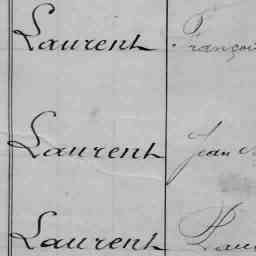 Laurent Françoi
Laurent Jean
Laurent Pau